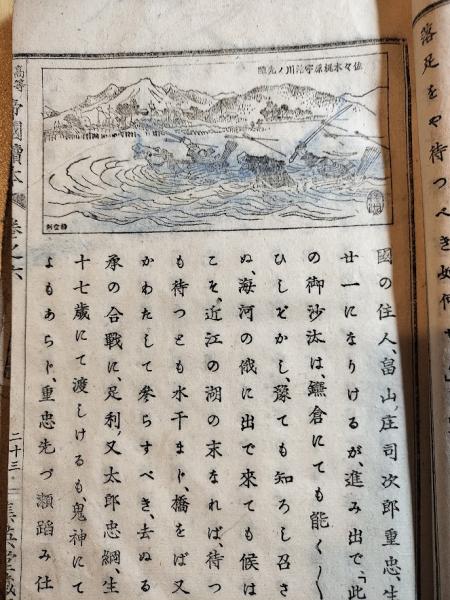 落足をや待つべき如何せ
佐々木梶原宇治川ノ先陣
國の住人、畠山、庄司次郎重忠、生
廿一になりけるが、進み出で、「此
の御沙汰は、鎌倉にても能く〱
ひしどかし、豫ても知ろし召さ
ぬ、海河の俄に出で來ても候は
こそ、近江の湖の末なれば、待つ
も待つとも水干まじ、橋をば又
かわたして參らすべき、去ぬる
承の合戰に、足利、又太郎忠綱、生
十七歳にて渡しけるも、鬼神にて
よもあらじ、重忠先づ瀬蹈み仕
高等 帝國讀本 卷之六
二十三
集英堂藏